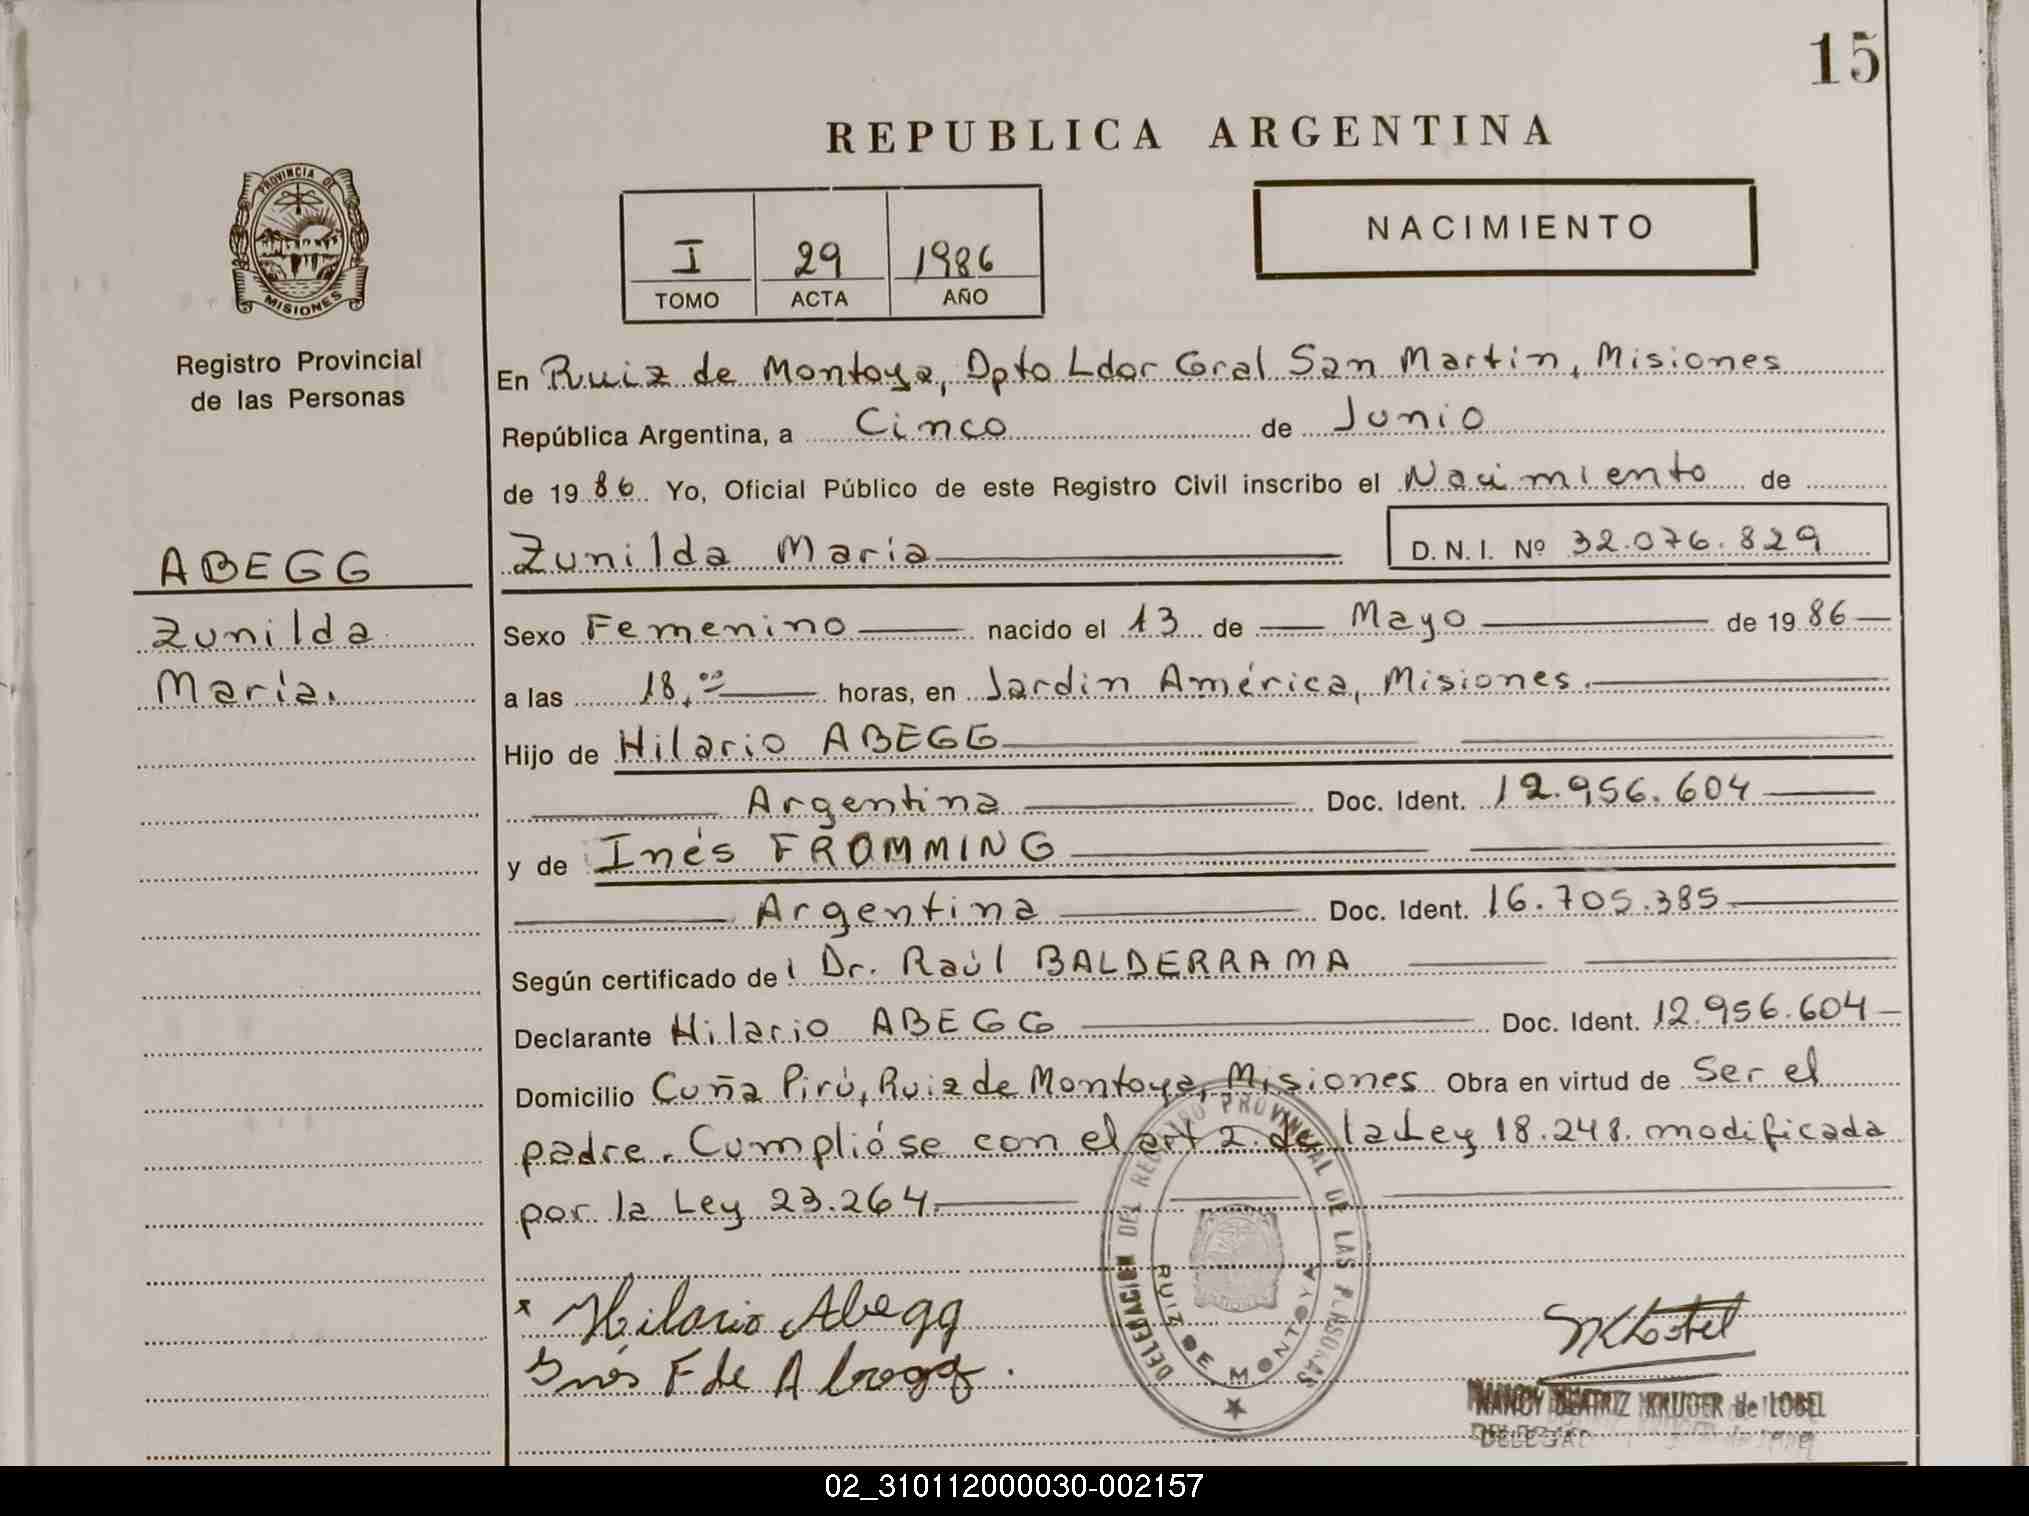 15
REPUBLICA ARGENTINA
PROVINCIA DE
MISIONES
Registro Provincial
de las Personas
I 29 1986
TOMO ACTA AÑO
NACIMIENTO
En Ruiz de Montoya, Dpto Ldor Gral San Martin, Misiones
República Argentina, a Cinco de Junio
de 1986 Yo, Oficial Público de este Registro Civil inscribo el Nacimiento de
ABEGG
Zunilda
María.
Zunilda María D. N. I. Nº 32.076.829
Sexo Femenino nacido el 13 de Mayo de 1986
a las 18,00 horas, en Jardin América, Misiones.
Hijo de Hilario ABEGG
Argentina Doc. Ident. 12.956.604
y de Inés FROMMING
Argentina Doc. Ident. 16.705.385
Según certificado del Dr. Raúl BALDERRAMA
Declarante Hilario ABEGG Doc. Ident. 12.956.604
Domicilio Cuña Pirú, Ruiz de Montoya, Misiones Obra en virtud de Ser el
padre. Cumplióse con el art 2. de la Ley 18.248. modificada
por la Ley 23.264.
Hilario Abegg
Inés F de Abegg.
DELEGACION DEL REGISTRO PROVINCIAL DE LAS PERSONAS
RUIZ DE MONTOYA
NANCY BEATRIZ KRUGER de LOBEL
02_310112000030-002157